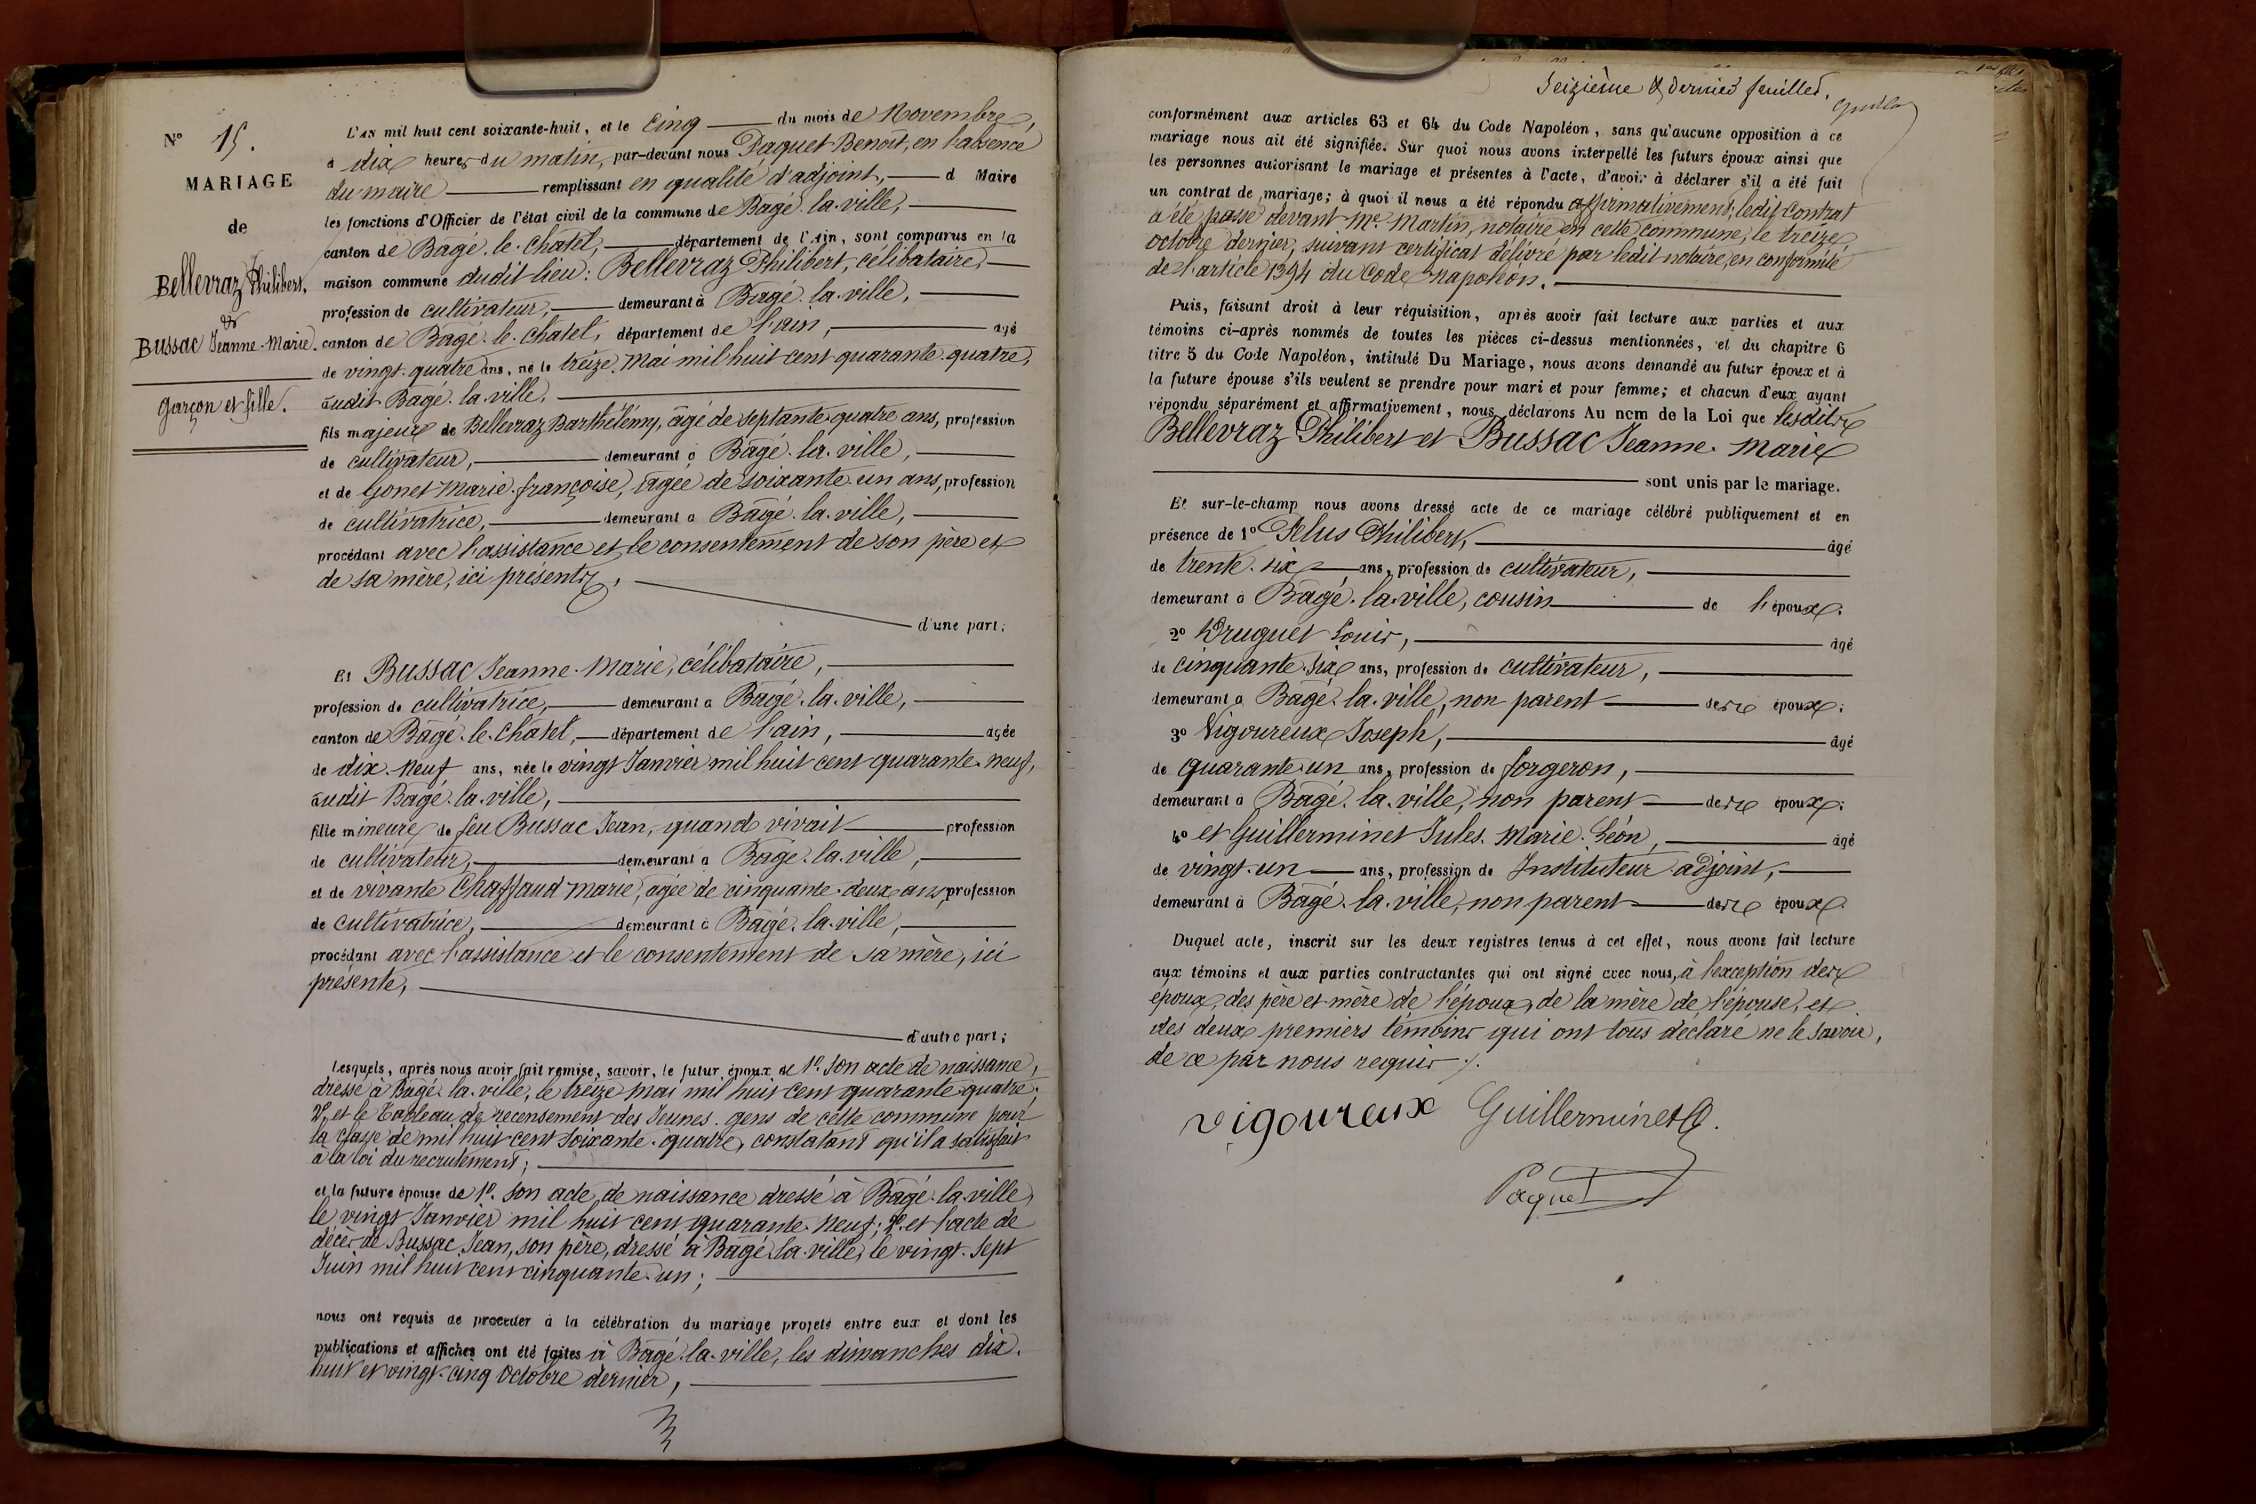 N° 15.
MARIAGE
de
Bellevraz Philibert,
&
Bussac Jeanne-Marie.
garçon et fille.
L'an mil huit cent soixante-huit, et le Cinq du mois de Novembre,
à dix heures du matin, par-devant nous Paquet Benoît, en l'absence
du maire remplissant en qualité d'adjoint, d Maire
les fonctions d'Officier de l'état civil de la commune de Bagé-la-ville,
canton de Bagé-le-Châtel, département de l'Ain, sont comparus en la
maison commune dudit lieu: Bellevraz Philibert, célibataire,
profession de cultivateur, demeurant à Bagé-la-ville,
canton de Bagé-le-Châtel, département de l'ain, agé
de vingt-quatre ans, né le treize Mai mil huit cent quarante-quatre,
audit Bagé-la-ville,
fils majeur de Bellevraz Barthélémy, âgé de septante-quatre ans, profession
de cultivateur, demeurant à Bagé-la-ville,
et de Gonet Marie-françoise, âgée de soixante-un ans, profession
de cultivatrice, demeurant à Bagé-la-ville,
procédant avec l'assistance et le consentement de son père et
de sa mère, ici présents,
d'une part;
Et Bussac Jeanne-Marie, célibataire,
profession de cultivatrice, demeurant à Bagé-la-ville,
canton de Bagé-le-Châtel, département de l'ain, agée
de dix-neuf ans, née le vingt Janvier mil huit cent quarante-neuf,
audit Bagé-la-ville,
fille mineure de feu Bussac Jean, quand vivait profession
de cultivateur, demeurant à Bagé-la-ville,
et de vivante Chaffaud Marie, âgée de cinquante-deux ans, profession
de cultivatrice, demeurant à Bagé-la-ville,
procédant avec l'assistance et le consentement de sa mère, ici
présente,
d'autre part;
Lesquels, après nous avoir fait remise, savoir, le futur époux de 1°. son acte de naissance,
dressé à Bagé-la-ville, le treize mai mil huit cent quarante-quatre;
2°. et le Tableau de recensement des Jeunes-gens de cette commune pour
la classe de mil huit cent soixante-quatre, constatant qu'il a satisfait
à la loi du recrutement;
et la future épouse de 1°. son acte de naissance dressé à Bagé-la-ville,
le vingt Janvier mil huit cent quarante-neuf; 2°. et l'acte de
décès de Bussac Jean, son père, dressé à Bagé-la-ville, le vingt-sept
Juin mil huit cent cinquante-un;
nous ont requis de procéder à la célébration du mariage projeté entre eux et dont les
publications et affiches ont été faites à Bagé-la-ville, les dimanches dix-
huit et vingt-cinq Octobre dernier,
Seizième & dernier feuillet.
conformément aux articles 63 et 64 du Code Napoléon, sans qu'aucune opposition à ce
mariage nous ait été signifiée. Sur quoi nous avons interpellé les futurs époux ainsi que
les personnes autorisant le mariage et présentes à l'acte, d'avoir à déclarer s'il a été fait
un contrat de mariage; à quoi il nous a été répondu affirmativement; ledit Contrat
a été passé devant Me. Martin, notaire en cette commune, le treize
octobre dernier, suivant certificat délivré par ledit notaire, en conformité
de l'article 1394 du Code napoléon.
Puis, faisant droit à leur réquisition, après avoir fait lecture aux parties et aux
témoins ci-après nommés de toutes les pièces ci-dessus mentionnées, et du chapitre 6
titre 5 du Code Napoléon, intitulé Du Mariage, nous avons demandé au futur époux et à
la future épouse s'ils veulent se prendre pour mari et pour femme; et chacun d'eux ayant
répondu séparément et affirmativement, nous déclarons Au nom de la Loi que lesdits
Bellevraz Philibert et Bussac Jeanne-Marie
sont unis par le mariage.
Et sur-le-champ nous avons dressé acte de ce mariage célébré publiquement et en
présence de 1° Pelus Philibert, âgé
de trente-six ans, profession de cultivateur,
demeurant à Bagé-la-ville, cousin de l'époux;
2° Druguet Louis, âgé
de cinquante-six ans, profession de cultivateur,
demeurant à Bagé-la-ville, non parent des époux;
3° Vigoureux Joseph, âgé
de quarante-un ans, profession de forgeron,
demeurant à Bagé-la-ville, non parent des époux;
4° et Guillerminet Jules-Marie-Léon, âgé
de vingt-un ans, profession de Instituteur-adjoint,
demeurant à Bagé-la-ville, non parent des époux
Duquel acte, inscrit sur les deux registres tenus à cet effet, nous avons fait lecture
aux témoins et aux parties contractantes qui ont signé avec nous, à l'exception des
époux, des père et mère de l'époux, de la mère de l'épouse, et
des deux premiers témoins qui ont tous déclaré ne le savoir,
de ce par nous requis ./.
vigoureux Guillerminet
Paquet